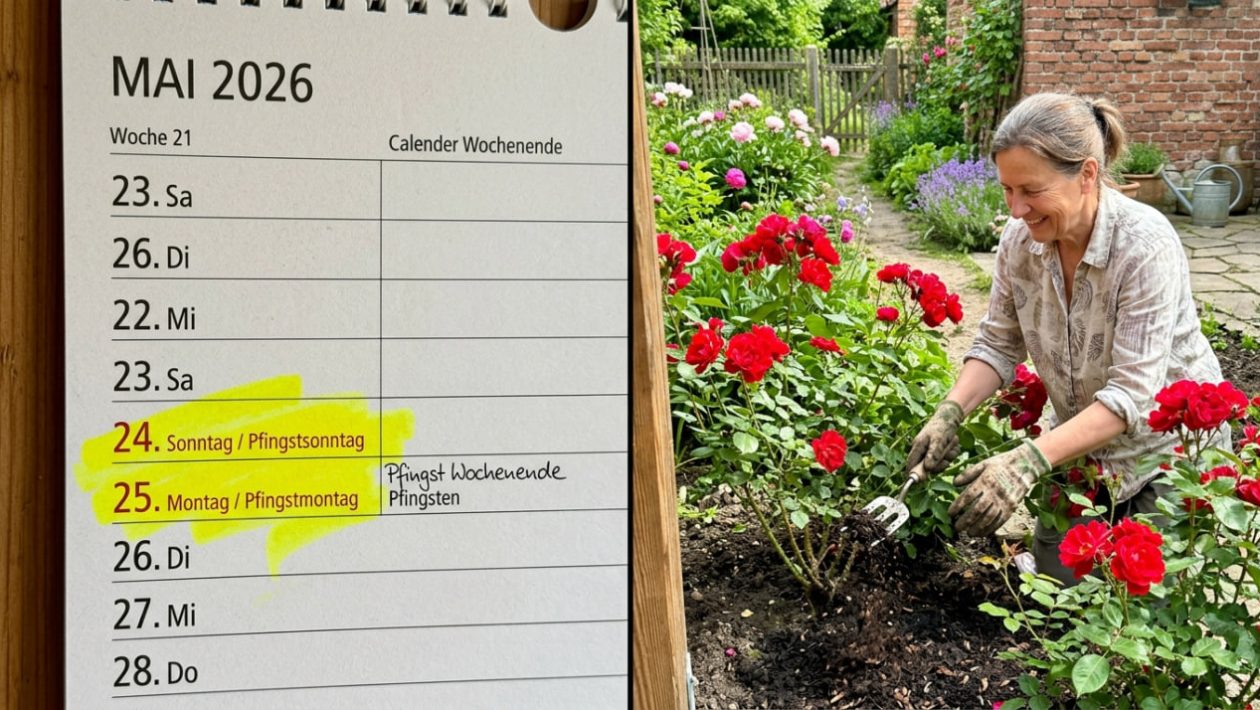 MAI 2026
Woche 21
Calender Wochenende
23. Sa
26. Di
22. Mi
23. Sa
24. Sonntag / Pfingstsonntag
25. Montag / Pfingstmontag
Pfingst Wochenende
Pfingsten
26. Di
27. Mi
28. Do